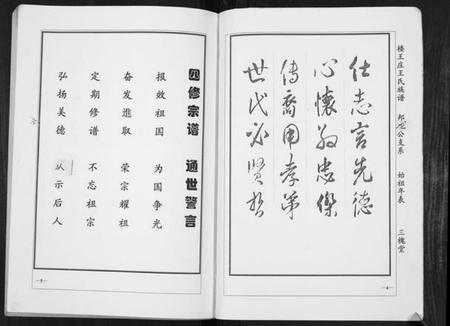 楼王庄王氏族谱 邦龙公支系 始祖年表 三槐堂
仕志言先德
心怀為忠傑
傳裔用孝弟
世代必贤哲
—4—
四修宗谱 通世警言
报效祖国 为国争光
奋发進取 荣宗耀祖
定期修谱 不忘祖宗
弘扬美德 以示后人